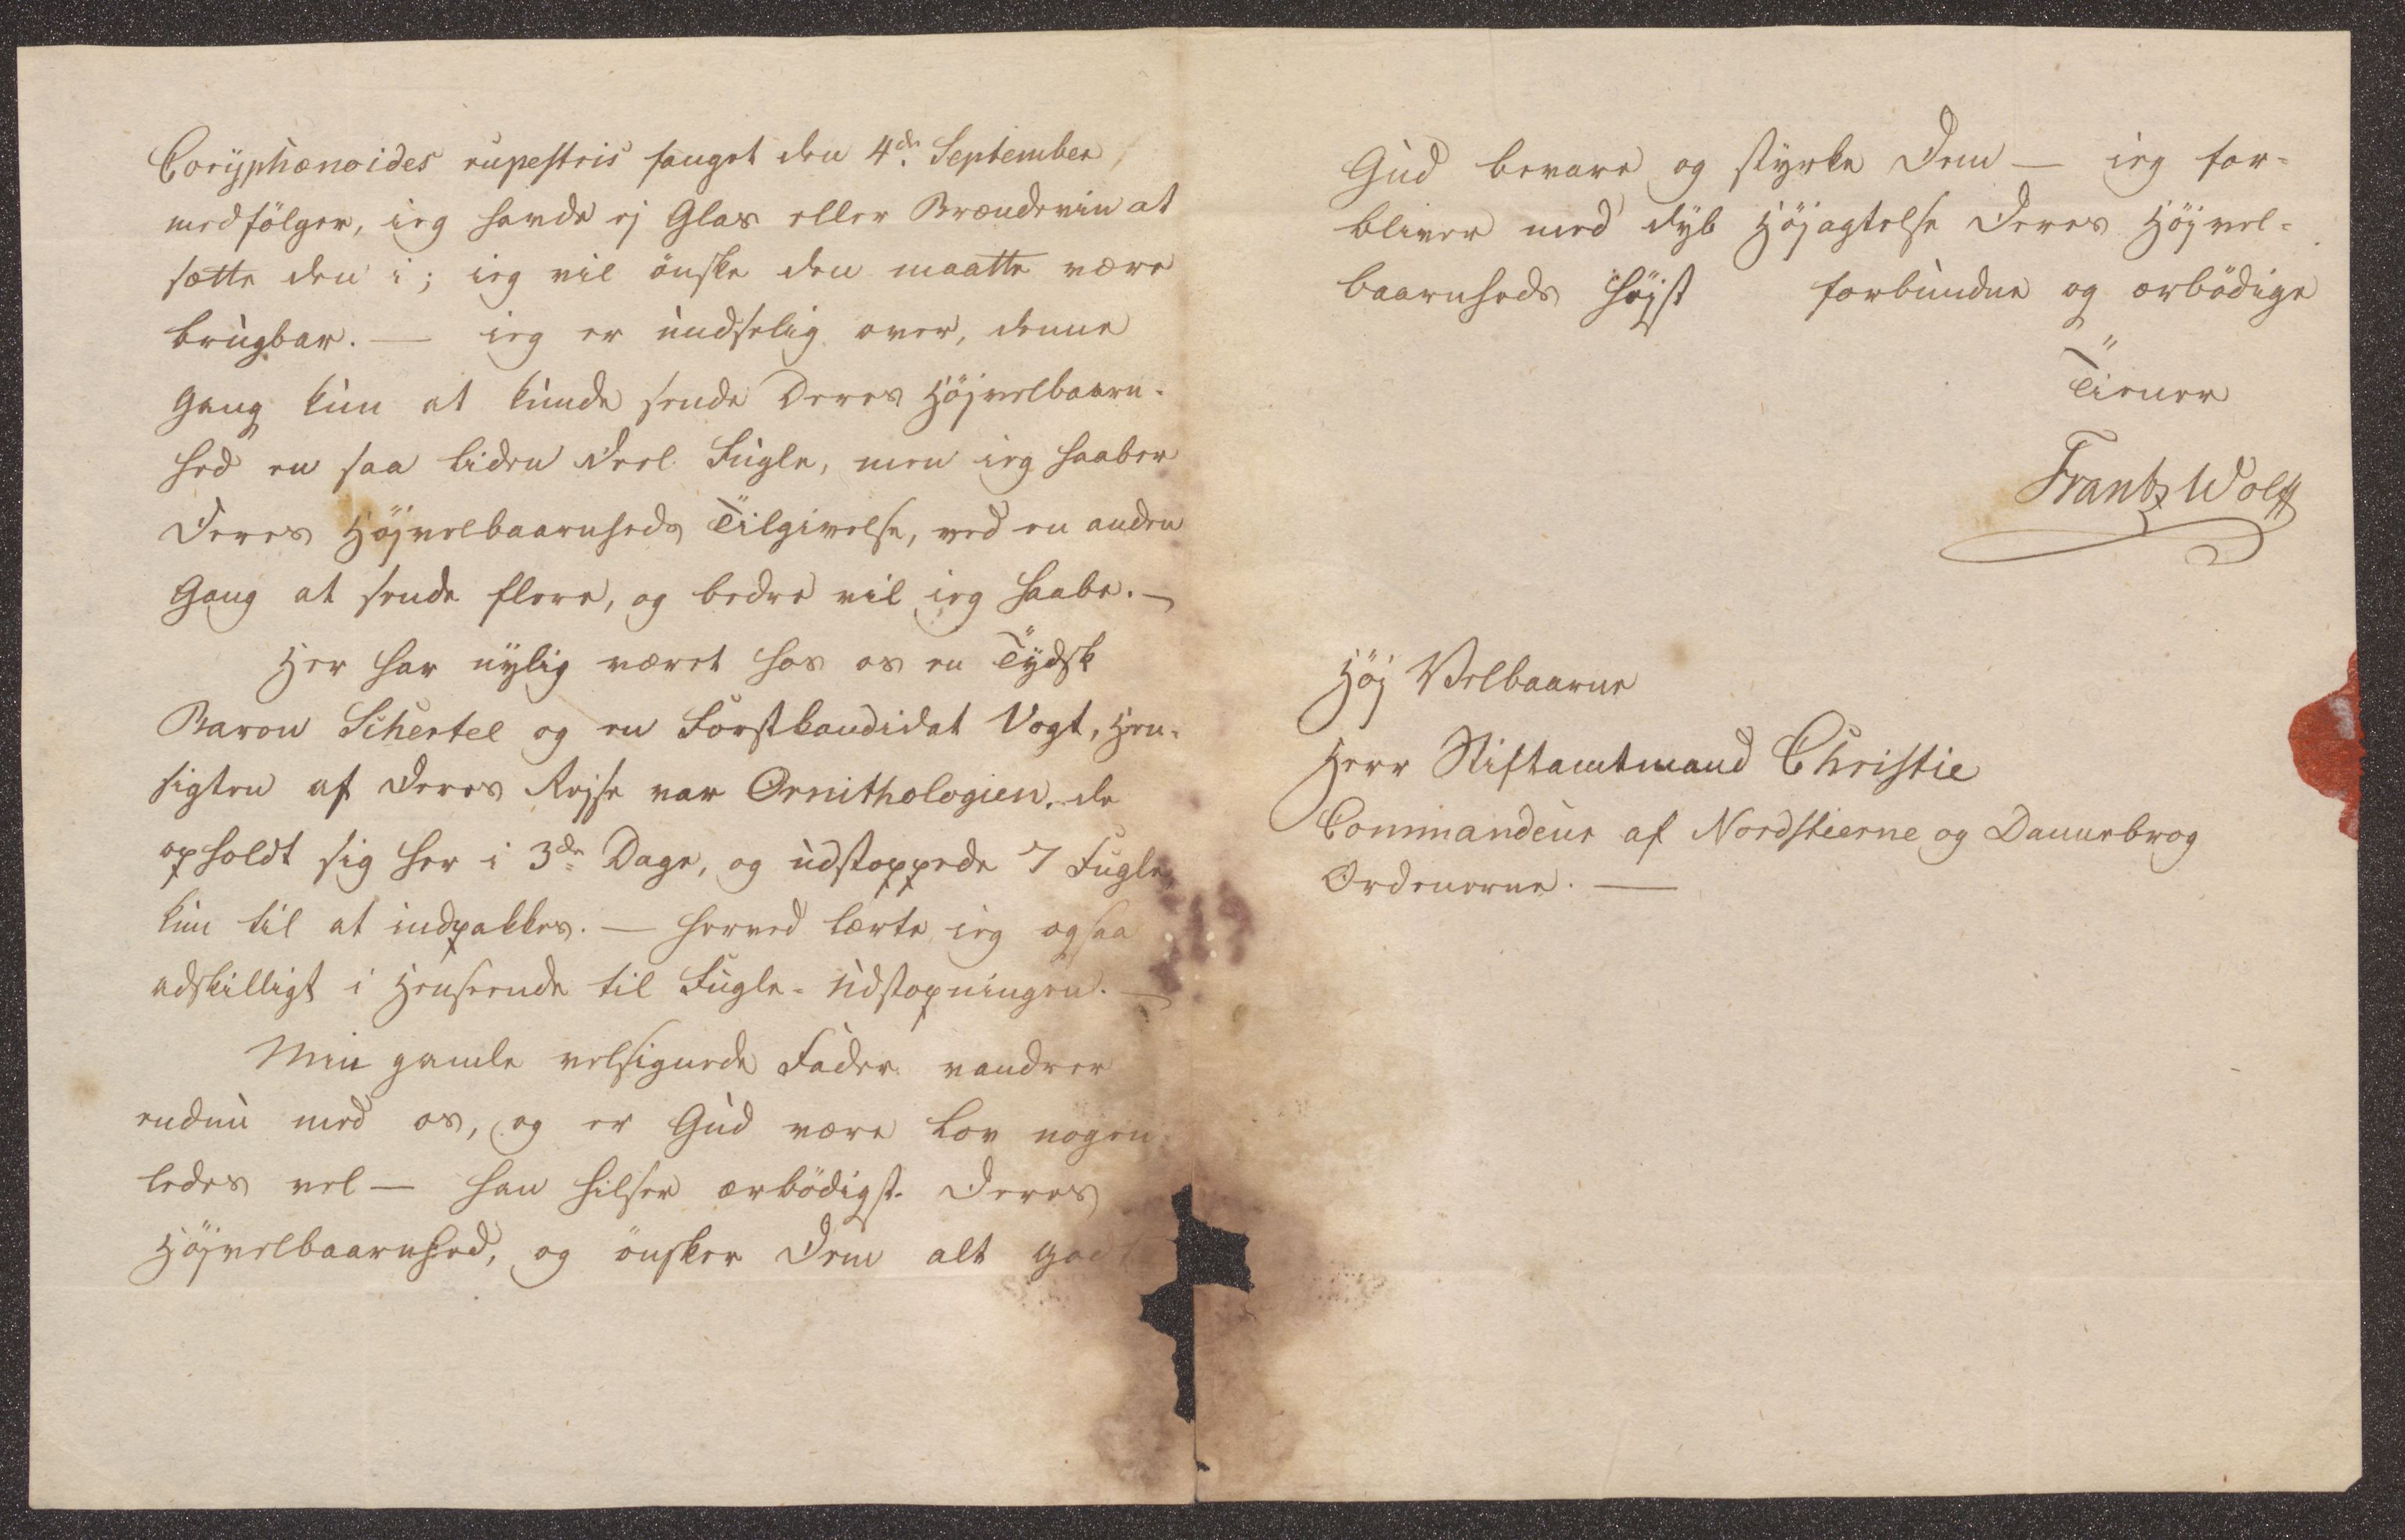 Corÿphænoides rupestris fanget den 4de September,
medfölger, ieg havde ej Glas eller Brændeviin at
sætte den i; ieg vil önske den maatte være
brugbar. — ieg er undselig over, denne
Gang kun at kunde sende Deres Höjvelbaarn-
hed en saa liden Deel Fugle, men ieg haaber
Deres Höjvelbaarnheds Tilgivelse, ved en anden
Gang at sende flere, og bedre vil ieg haabe. —
Her har nÿlig været hos os en Tÿdsk
Baron Schertel og en Forstkandidat Vogt, Hen-
sigten af Deres Rejse var Ornithologien. de
opholdt sig her i 3de Dage, og udstoppede 7 Fugle
kun til at indpakkes. — herved lærte ieg ogsaa
adskilligt i Henseende til Fugle-Udstopningen. —
Min gamle velsignede Fader vandrer
endnu med os, og er Gud være Lov nogen-
ledes vel — han hilser ærbödigst Deres
Höjvelbaarnhed, og önsker Dem alt godt
Gud bevare og stÿrke Dem — ieg for-
bliver med dÿb Höjagtelse Deres Höjvel-
baarnheds höjst forbundne og ærbödige
Tiener
Frantz Wolff
Höj Velbaarne
Herr Stiftamtmand Christie
Commandeur af Nordstierne og Dannebrog
Ordenerne. —